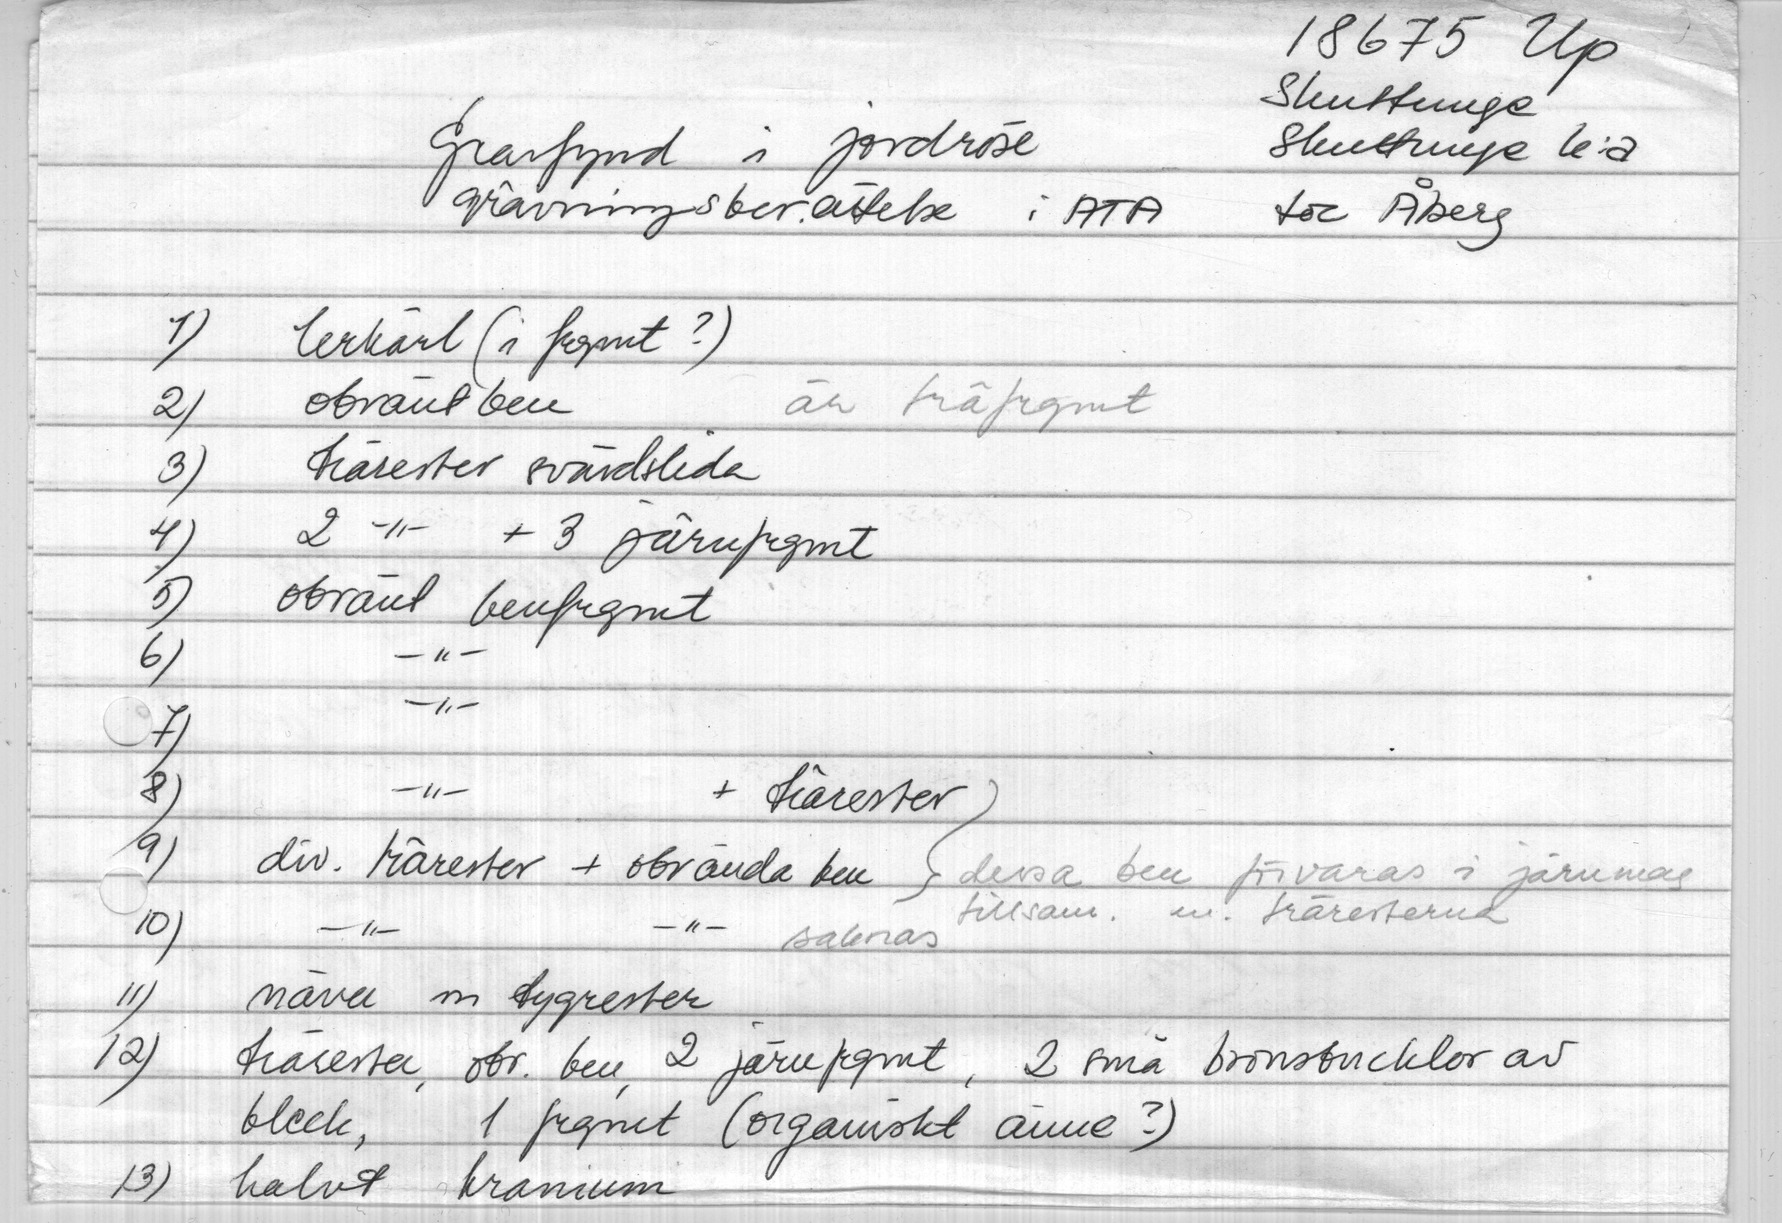 18675 Up
Skuttunge
Skuttunge k:a
Gravfynd i jordröse
grävningsberättelse i ATA toc Åberg
1) lerkärl (i frgmt?)
2) obränt ben är träfrgmt
3) trärester svärdslida
4) 2 -"- + 3 järnfrgmt
5) obränt benfrgmt
6) -"-
7) -"-
8) -"- + trärester
9) div. trärester + obrända ben dessa ben förvaras i järnmag
tillsam. m. träresterna
10) -"- -"- saknas
11) näver m tygrester
12) trärester, obr. ben, 2 järnfrgmt, 2 små bronsbucklor av
bleck, 1 frgmt (organiskt ämne?)
13) halvt kranium